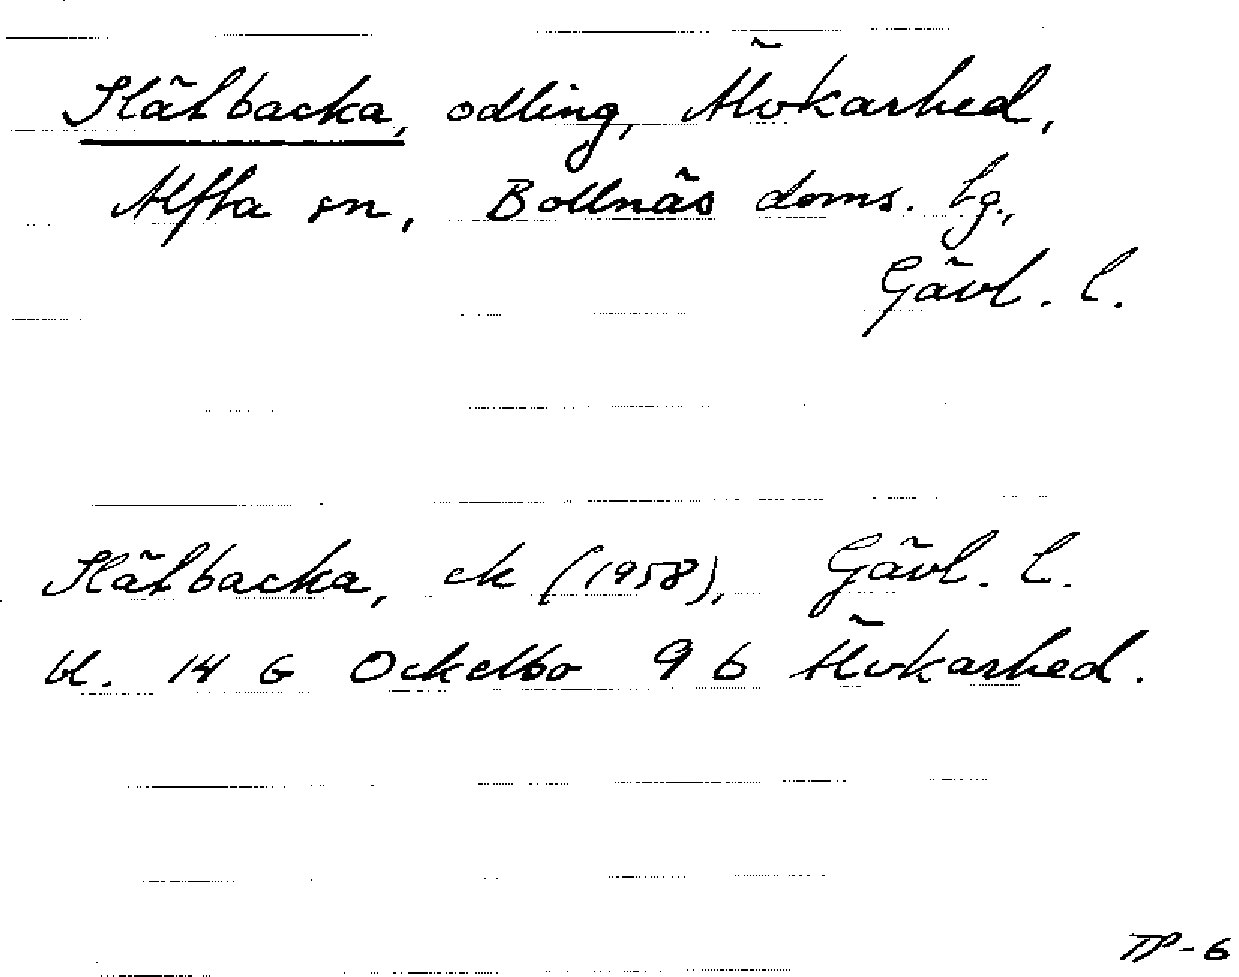 Slätbacka, odling, Älvkarhed,
Alfta sn, Bollnäs doms. lg.,
Gävl. l.
Slätbacka, ek (1958), Gävl. l.
bl. 14 G Ockelbo 9 b Älvkarhed.
TP-6